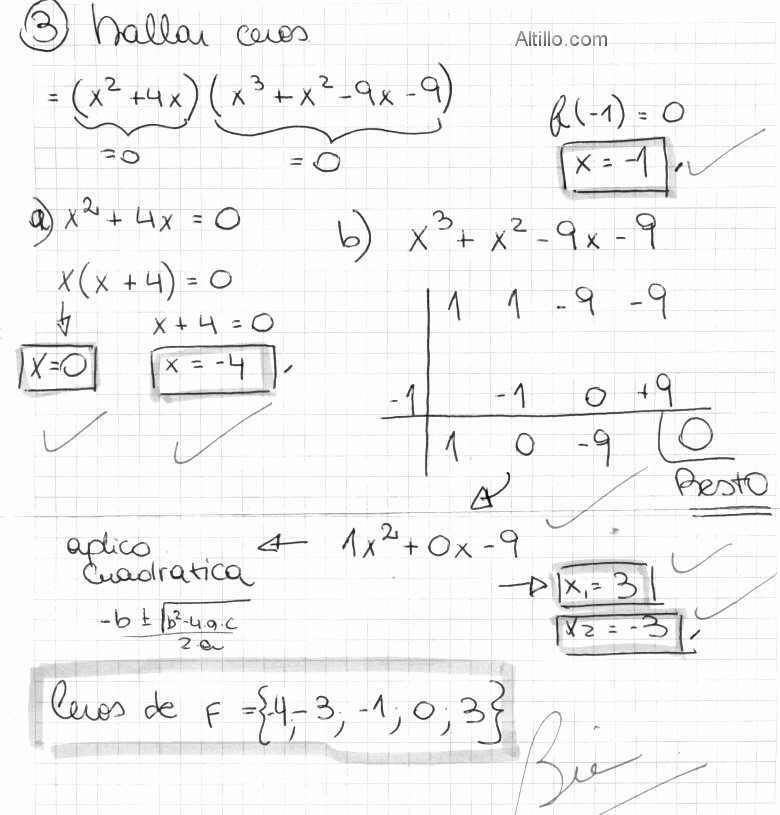 ③ hallar ceros
Altillo.com
= (x² + 4x) (x³ + x² - 9x - 9)
=0 = 0
f(-1) = 0
x = -1
a) x² + 4x = 0
x(x + 4) = 0
x + 4 = 0
x=0 x = -4
b) x³ + x² - 9x - 9
1 1 -9 -9
-1 -1 0 +9
1 0 -9 0
Resto
aplico ← 1x² + 0x - 9
cuadratica
-b ± √b²-4.a.c
2.a
→ x₁ = 3
x₂ = -3
Ceros de F = {-4; -3; -1; 0; 3}
Bie